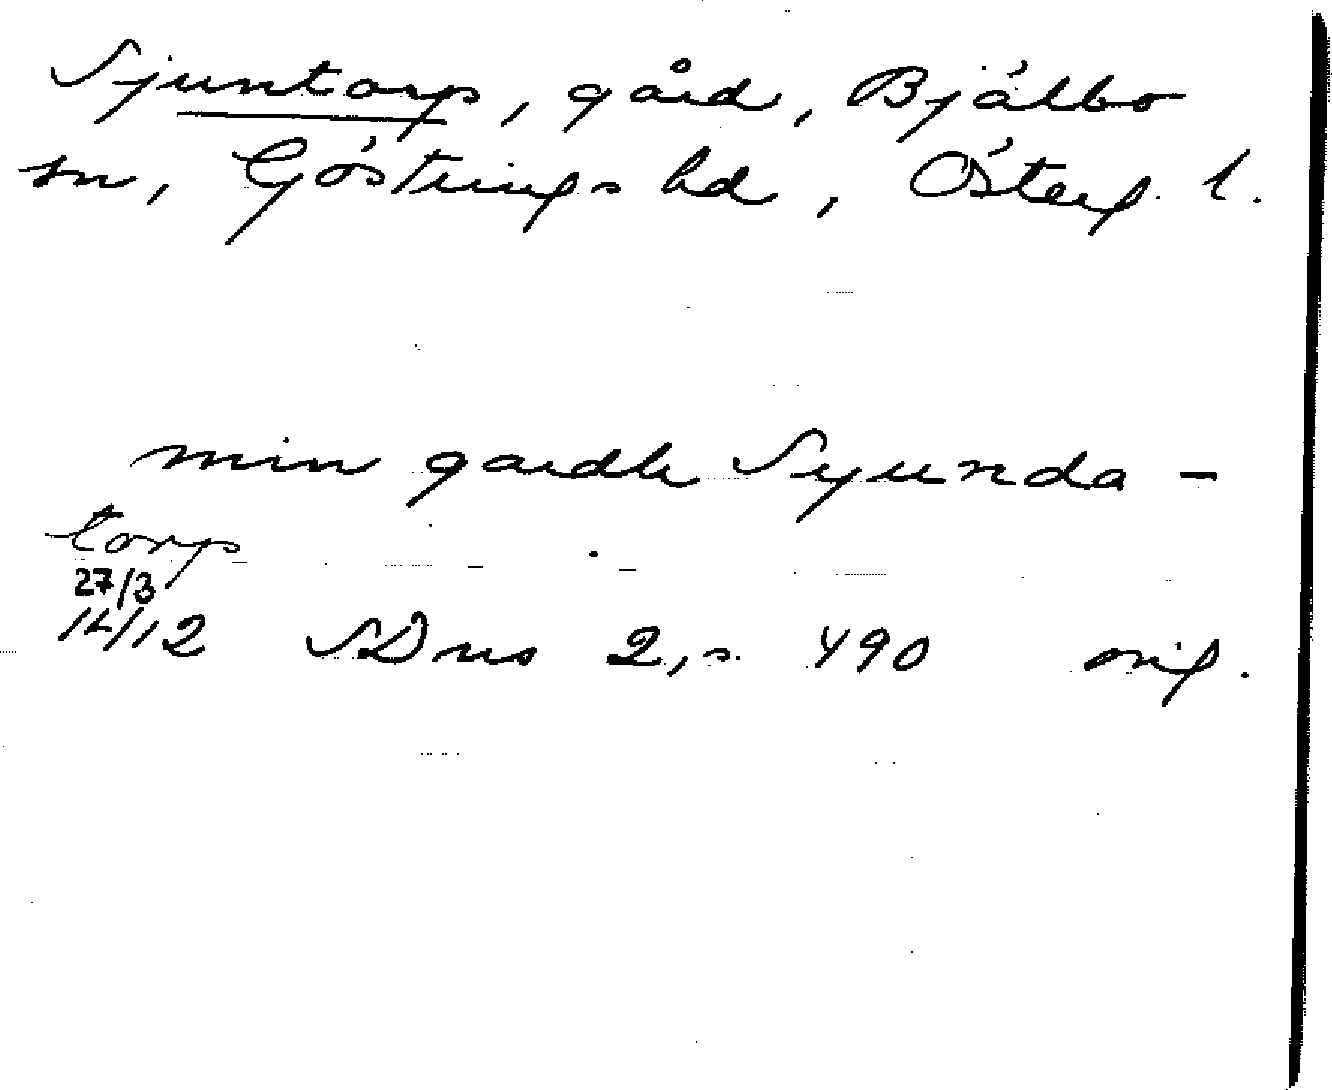 Sjuntorp, gård, Bjälbo
sn, Göstrings hd, Österg. l.
min gardh Syunda-
torp
27/3
14/12 SDns 2, s. 490 orig.